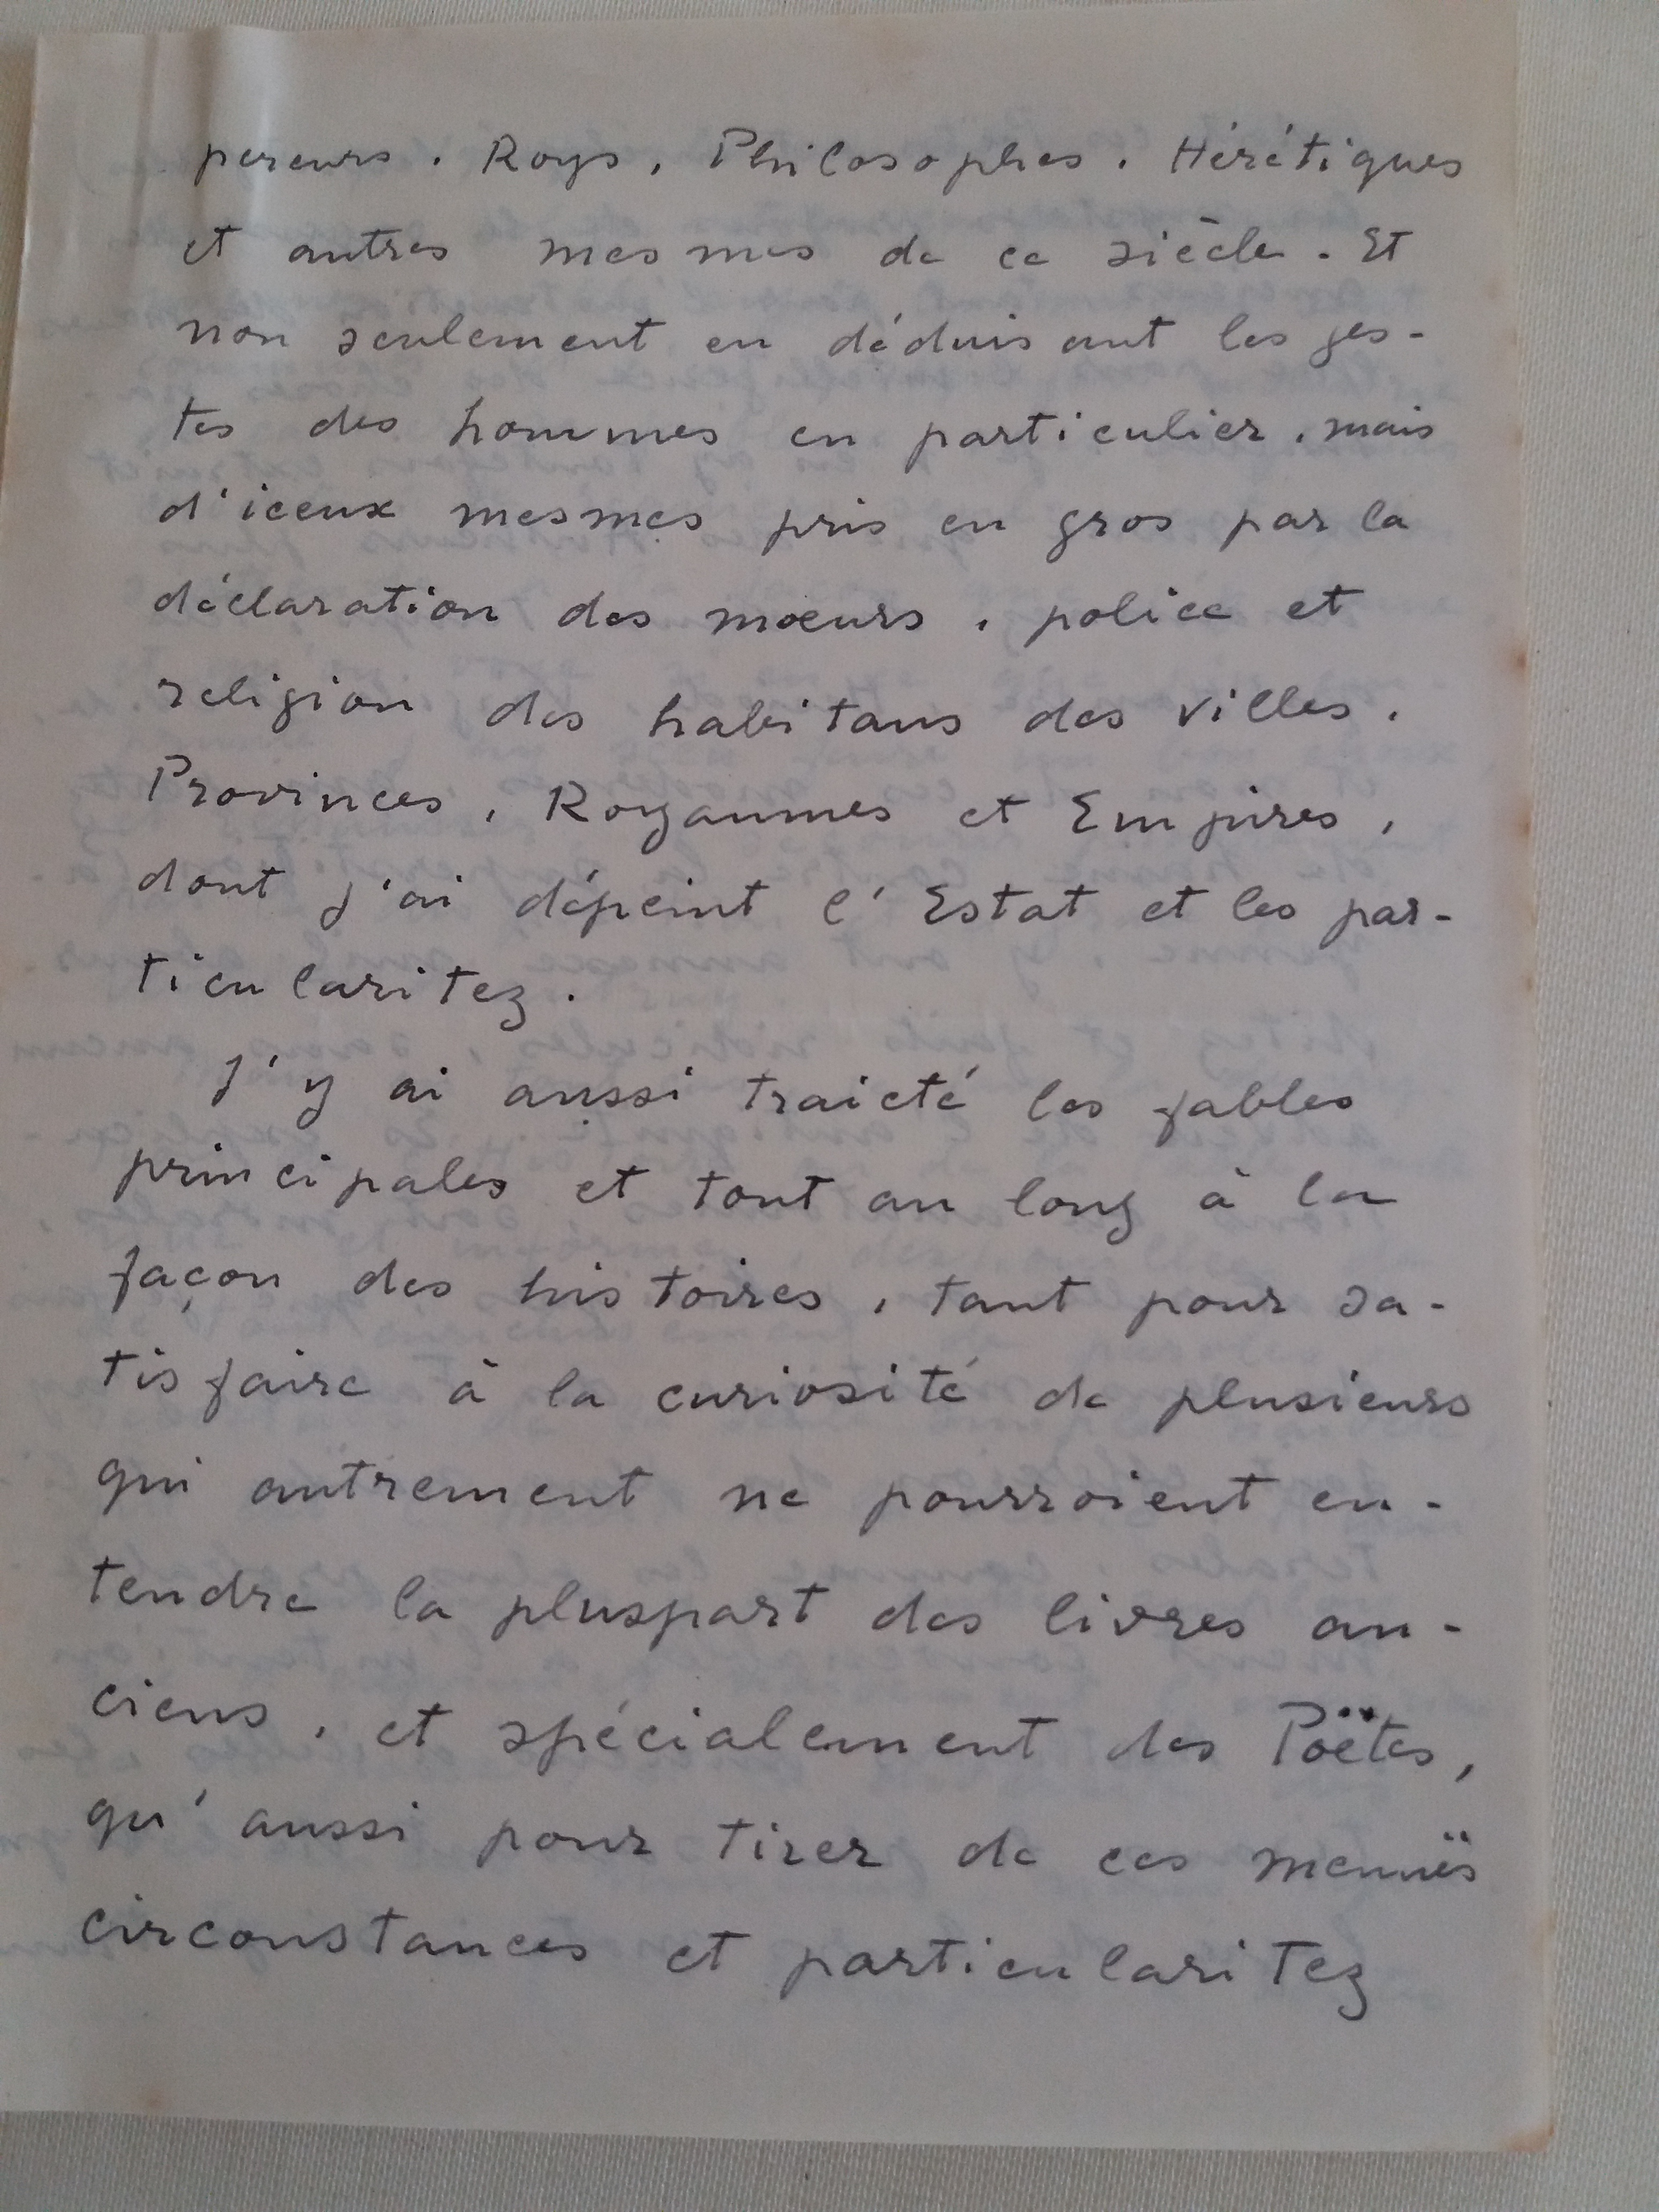 pereurs, Roys, Philosophes, Hérétiques
et autres mesmes de ce siècle. Et
non seulement en déduisant les ges-
tes des hommes en particulier, mais
d'iceux mesmes pris en gros par la
déclaration des mœurs, police et
religion des habitans des villes,
Provinces, Royaumes et Empires,
dont j'ai dépeint l'Estat et les par-
ticularitez.
J'y ai aussi traicté les fables
principales et tout au long à la
façon des histoires, tant pour sa-
tisfaire à la curiosité de plusieurs
qui autrement ne pourroient en-
tendre la pluspart des livres an-
ciens, et spécialement des Poëtes,
qu'aussi pour tirer de ces menuës
circonstances et particularitez